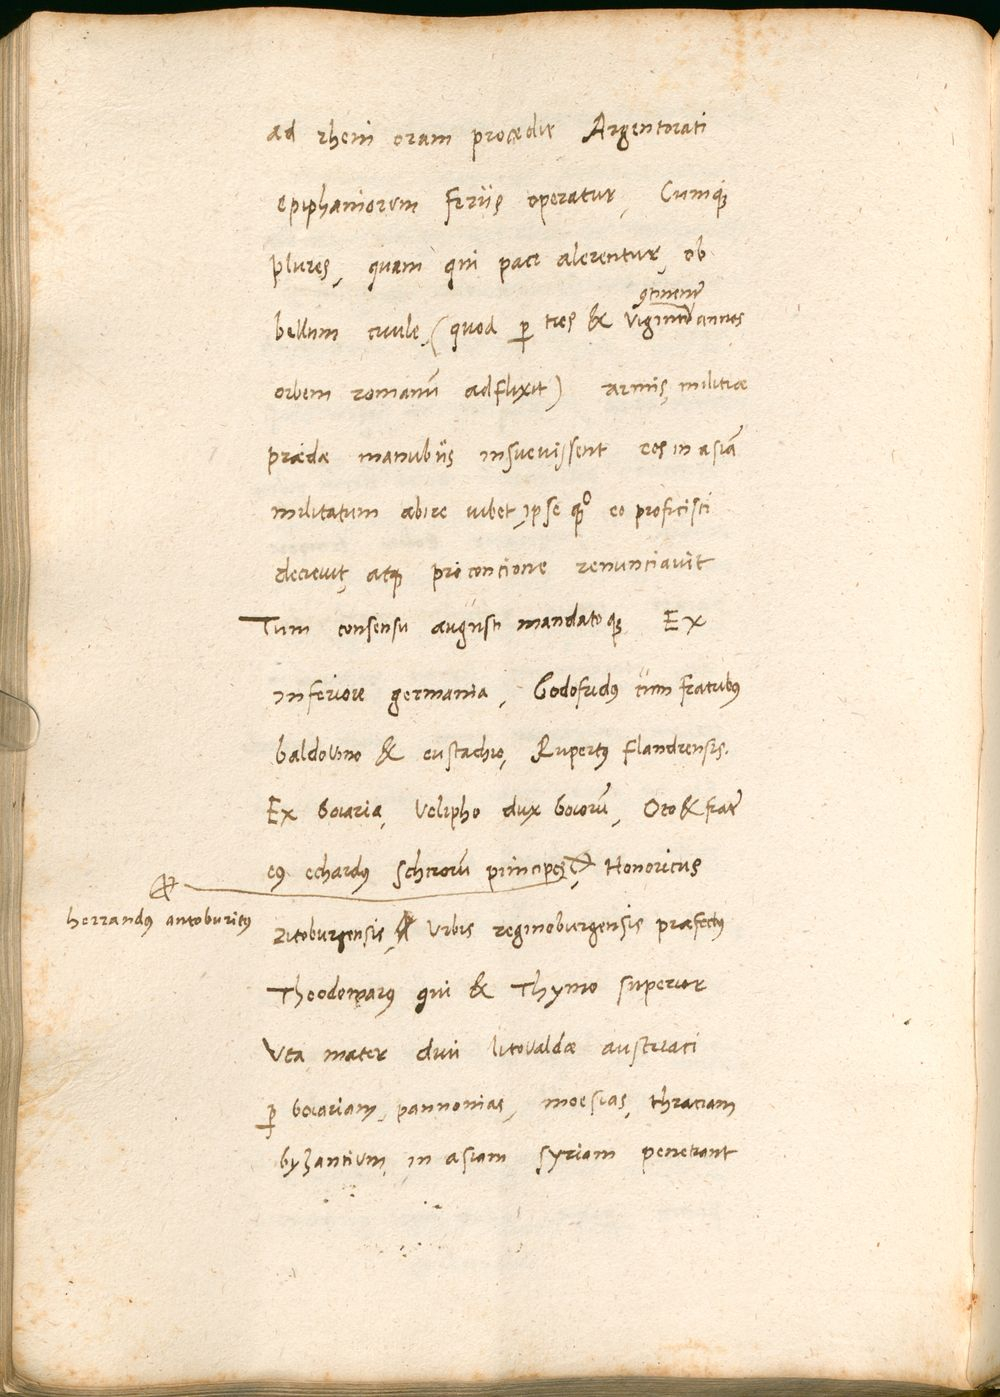 ad rheni oram procedit Argentorati
epiphaniorum feriis operatur, Cumq;
plures, quam qui pace alerentur, ob
bellum ciuile, (quod ꝑ tres & Viginti ꝯtinenter annos
orbem romanū adflixit) armis, militiæ
prædæ manubiis insuevissent eos in asiā
militatum abire iubet, ipse qꝫo eo proficisci
decreuit, atqꝫ pro concione renunciauit
Tum consensu augusti mandatoqꝫ Ex
inferiore germania, Godofridꝰ cum fratribꝰ
baldovino & eustachio, Rupertꝰ flandrensis.
Ex boiaria, Velpho dux boiorū, Oto & frater
eiꝰ echardꝰ schirorū principes, Honoricus
herrandꝰ antoburicꝰ
ritoburgensis, Vrbis reginoburgensis præfectꝰ
Theodomarꝰ qui & Thymo superior
Vta mater diui litovaldæ austriaci
ꝑ boiariam, pannonias, moesias, thraciam
byzantium, in asiam syriam penetrant